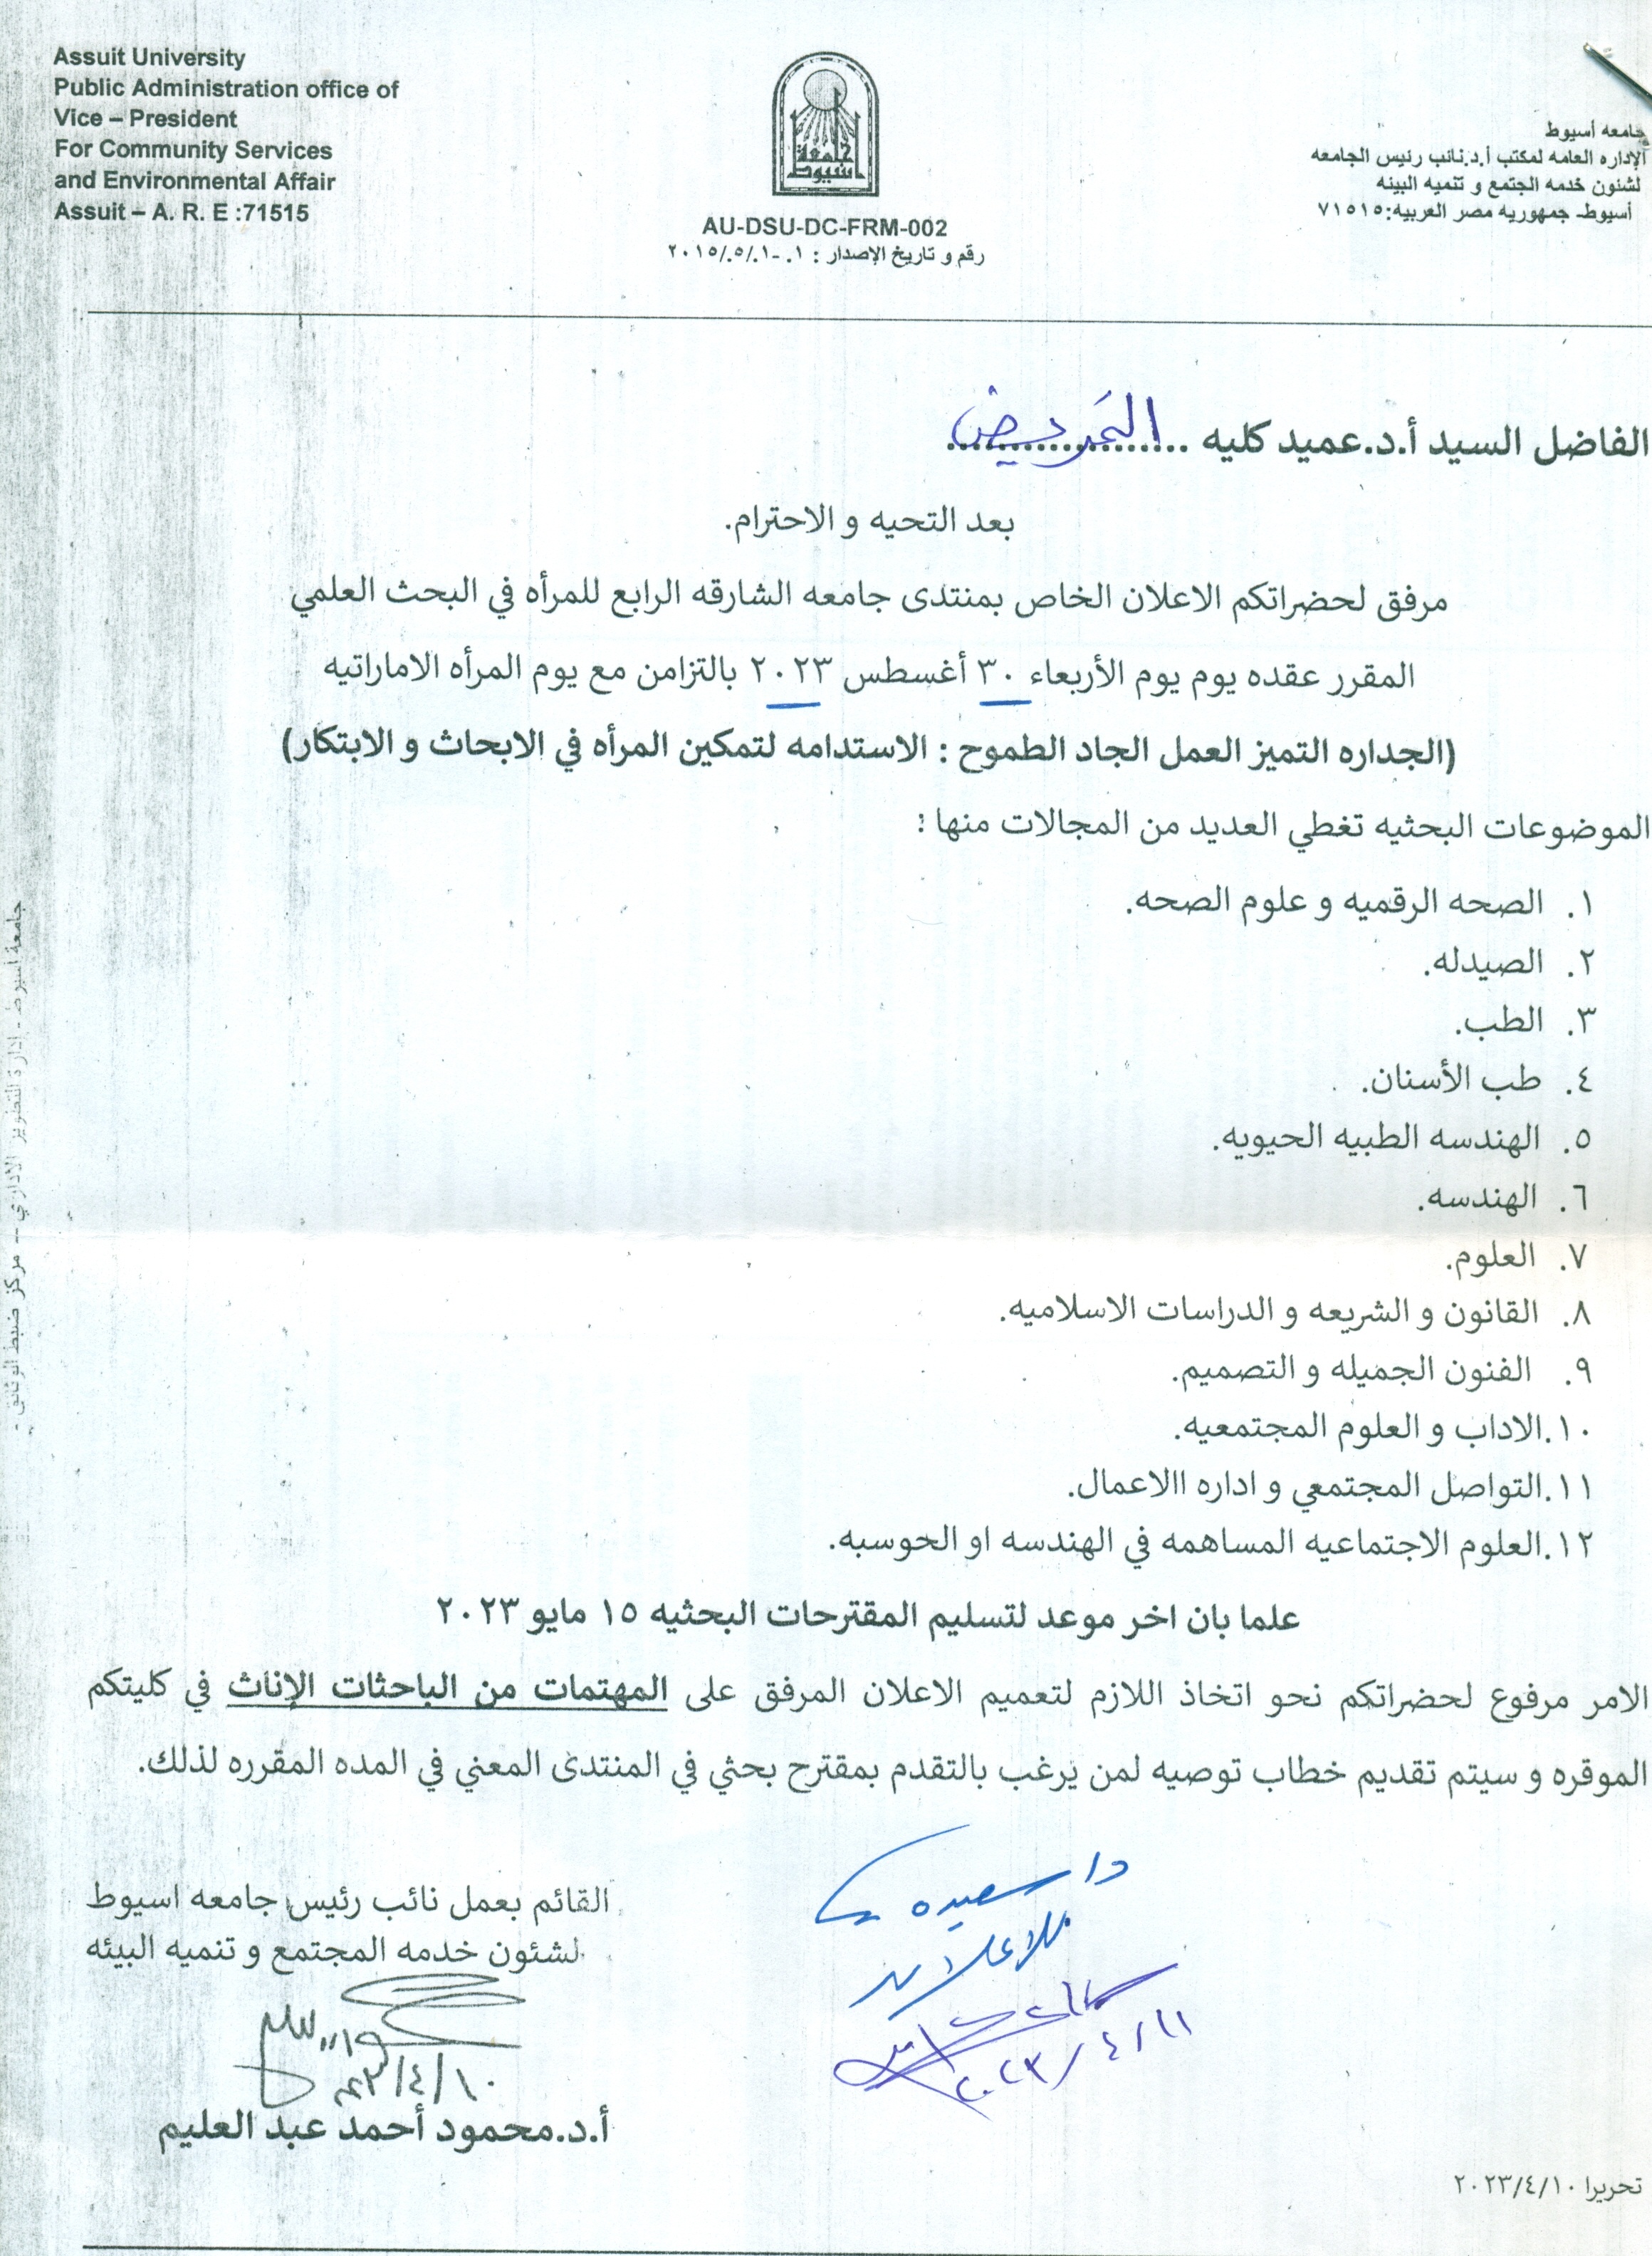 Assuit University
Public Administration office of
Vice – President
For Community Services
and Environmental Affair
Assuit – A. R. E :71515
جامعة أسيوط
AU-DSU-DC-FRM-002
رقم و تاريخ الإصدار : ١. -٢٠١٥/.٥/.١
جامعه أسيوط
الإداره العامه لمكتب أ.د.نائب رئيس الجامعه
لشئون خدمه الجتمع و تنميه البيئه
أسيوط- جمهوريه مصر العربيه:٧١٥١٥
الفاضل السيد أ.د.عميد كليه التمريض
بعد التحيه و الاحترام.
مرفق لحضراتكم الاعلان الخاص بمنتدى جامعه الشارقه الرابع للمرأه في البحث العلمي
المقرر عقده يوم يوم الأربعاء ٣٠ أغسطس ٢٠٢٣ بالتزامن مع يوم المرأه الاماراتيه
(الجداره التميز العمل الجاد الطموح : الاستدامه لتمكين المرأه في الابحاث و الابتكار)
الموضوعات البحثيه تغطي العديد من المجالات منها :
١. الصحه الرقميه و علوم الصحه.
٢. الصيدله.
٣. الطب.
٤. طب الأسنان.
٥. الهندسه الطبيه الحيويه.
٦. الهندسه.
٧. العلوم.
٨. القانون و الشريعه و الدراسات الاسلاميه.
٩. الفنون الجميله و التصميم.
١٠.الاداب و العلوم المجتمعيه.
١١.التواصل المجتمعي و اداره االاعمال.
١٢.العلوم الاجتماعيه المساهمه في الهندسه او الحوسبه.
علما بان اخر موعد لتسليم المقترحات البحثيه ١٥ مايو ٢٠٢٣
الامر مرفوع لحضراتكم نحو اتخاذ اللازم لتعميم الاعلان المرفق على المهتمات من الباحثات الإناث في كليتكم
الموقره و سيتم تقديم خطاب توصيه لمن يرغب بالتقدم بمقترح بحثي في المنتدى المعني في المده المقرره لذلك.
د/ سعيده
للاعلان
٢٠٢٣/٤/١١
القائم بعمل نائب رئيس جامعه اسيوط
لشئون خدمه المجتمع و تنميه البيئه
٢٠٢٣/٤/١٠
أ.د.محمود أحمد عبد العليم
تحريرا ٢٠٢٣/٤/١٠
جامعة أسيوط - إدارة التطوير الإداري – مركز ضبط الوثائق -